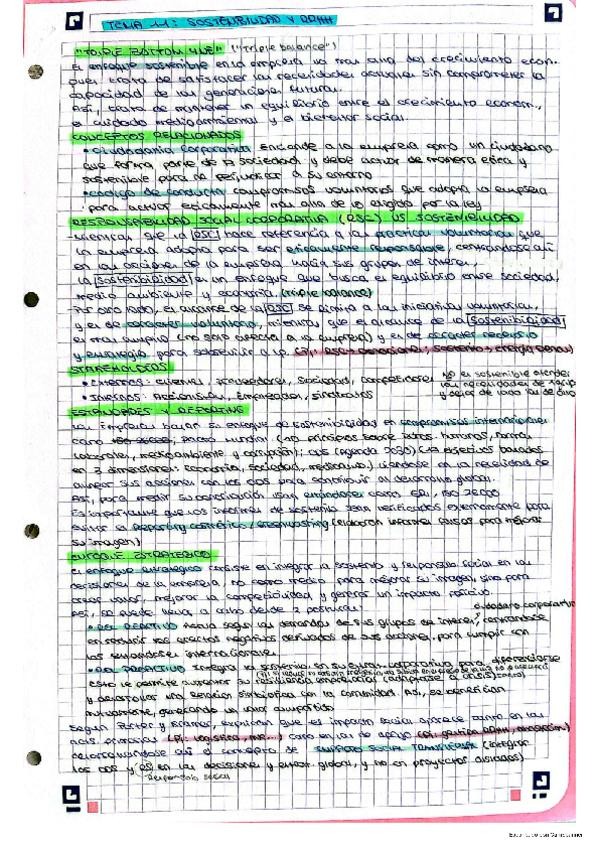 TEMA 11: SOSTENIBILIDAD Y DDHH
"TRIPLE BOTTOM LINE" ("Triple balance")
El enfoque sostenible en la empresa va mas alla del crecimiento econ.
pues trata de satisfacer las necesidades actuales sin comprometer la
capacidad de las generaciones futuras.
Asi, trata de mantener un equilibrio entre el crecimiento econom.,
el cuidado medioambiental y el bienestar social.
CONCEPTOS RELACIONADOS
• ciudadania corporativa entiende a la empresa como un ciudadano
que forma parte de la sociedad y debe actuar de manera etica y
sostenible para no perjudicar a su entorno
• codigo de conducta compromisos voluntarios que adopta la empresa
para actuar eticamente mas alla de lo exigido por la ley
RESPONSABILIDAD SOCIAL CORPORATIVA (RSC) VS SOSTENIBILIDAD
- Mientras que la RSC hace referencia a las practicas voluntarias que
la empresa adopta para ser eticamente responsable, centrandose asi
en las acciones de la empresa hacia sus grupos de interes,
la Sostenibilidad es un enfoque que busca el equilibrio entre sociedad,
medio ambiente y economia (triple balance)
- Por otro lado, el alcance de la RSC se limita a las iniciativas voluntarias,
y es de caracter voluntario, mientras que el alcance de la Sostenibilidad
es mas amplio (no solo afecta a la empresa) y es de caracter necesario
y estrategico para sobrevivir a l.p.
STAKEHOLDERS
• Externos: clientes, proveedores, sociedad, competidores
• Internos: Accionistas, Empleados, sindicatos
No es sostenible atender
las necesidades de
y dejar de lado las de otro
ESTANDARES Y REPORTING
Las empresas basan su enfoque de sostenibilidad en compromisos internacionales
como pacto mundial (10 principios sobre dchos. humanos, normas
laborales, medioambiente y corrupcion); ODS (agenda 2030) (17 objetivos basados
en 3 dimensiones: economia, sociedad, medioamb.) viendose en la necesidad de
alinear sus acciones con los ODS para contribuir al desarrollo global.
Asi, para medir su contribucion usan estandares como GRI, ISO 26000
Es importante que los informes de sostenib. sean verificados externamente para
evitar el reporting cosmetico / greenwashing (elaboran informes falsos para mejorar
su imagen)
ENFOQUE ESTRATEGICO
El enfoque estrategico consiste en integrar la sostenib y responsab social en las
decisiones de la empresa, no como medio para mejorar su imagen, sino para
crear valor, mejorar la competitividad y generar un impacto positivo.
Asi, se puede llevar a cabo desde 2 posturas:
ciudadano corporativo
• ROL REACTIVO Actua segun las demandas de sus grupos de interes, centrandose
en reducir los efectos negativos derivados de sus acciones, para cumplir con
los estandares internacionales.
• ROL PROACTIVO Integra la sostenib. en su estrat. corporativa para diferenciarse
Esto le permite aumentar su resiliencia empresarial (adaptarse a crisis)
y desarrollar una relacion simbiotica con la comunidad. Asi, se benefician
mutuamente, generando un valor compartido
Segun Porter y Kramer, explican que el impacto social aparece tanto en las
activ primarias (Ej: logistica, ...) como en las de apoyo (Ej: gestion RRHH, )
desarrollandose asi el concepto de IMPACTO SOCIAL TRANSVERSAL (integrar
los ODS y RS en las decisiones y estrat. global, y no en proyectos aislados)
Responsab social